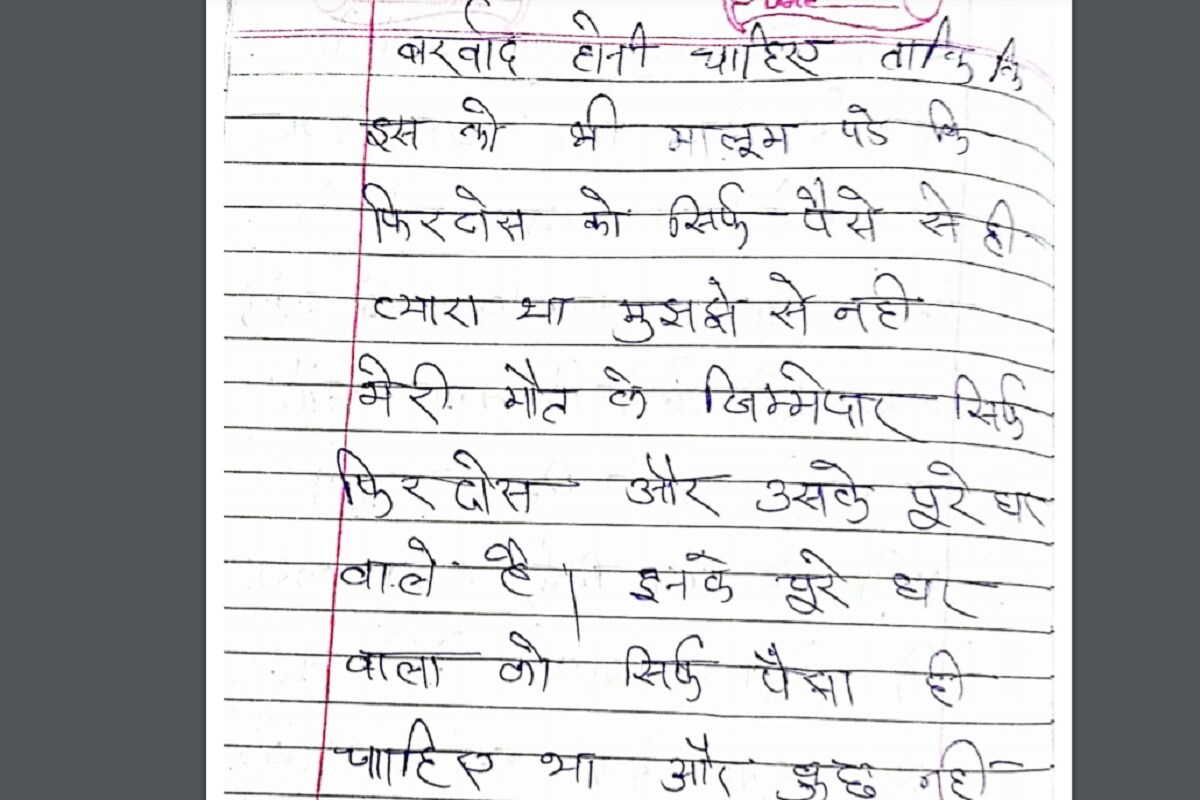 बरर्वाद होनी चाहिए ताकि कि
इस को भी मालूम पडे कि
फिरदोस को सिर्फ पैसे से ही
प्यारा था मुझझे से नही
मेरी मौत के जिम्मेदार सिर्फ
फिरदोस और उसके पूरे घर
वाले है । इनके पूरे घर
वाला को सिर्फ पैसा ही
चाहिए था और कुछ नही